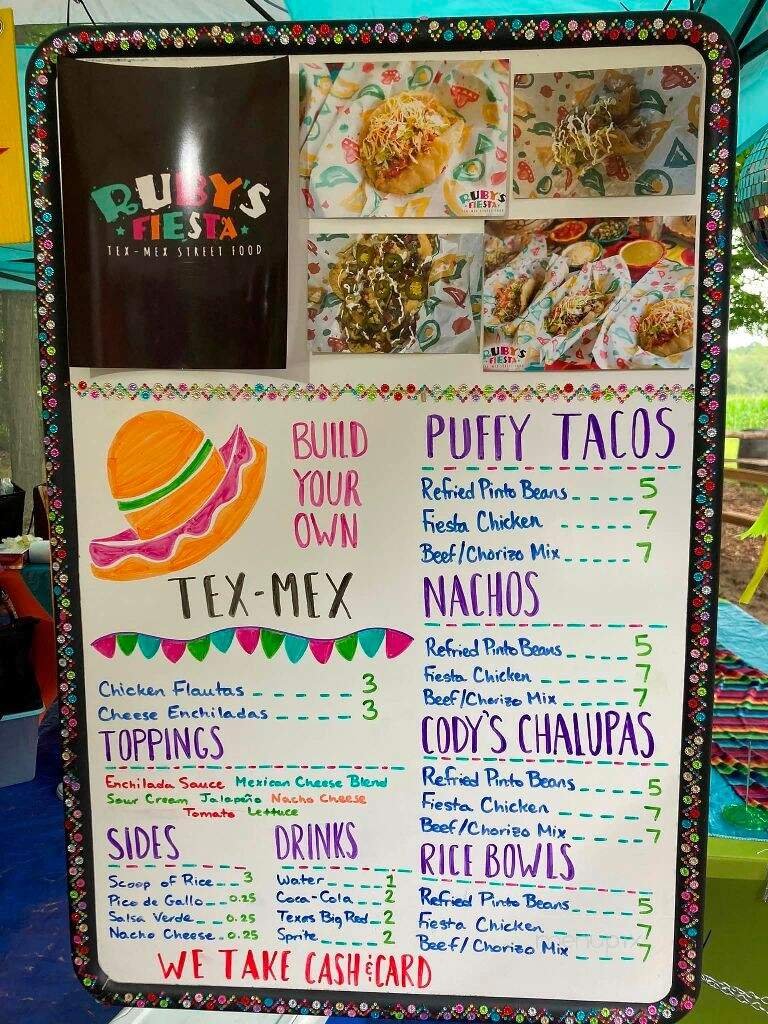 RUBY'S
FIESTA
TEX-MEX STREET FOOD
RUBY'S
FIESTA
TEX-MEX STREET FOOD
RUBY'S
FIESTA
BUILD
YOUR
OWN
TEX-MEX
Chicken Flautas 3
Cheese Enchiladas 3
TOPPINGS
Enchilada Sauce Mexican Cheese Blend
Sour Cream Jalapeño Nacho Cheese
Tomato Lettuce
SIDES
Scoop of Rice 3
Pico de Gallo 0.25
Salsa Verde 0.25
Nacho Cheese 0.25
DRINKS
Water 1
Coca-Cola 2
Texas Big Red 2
Sprite 2
PUFFY TACOS
Refried Pinto Beans 5
Fiesta Chicken 7
Beef/Chorizo Mix 7
NACHOS
Refried Pinto Beans 5
Fiesta Chicken 7
Beef/Chorizo Mix 7
CODY'S CHALUPAS
Refried Pinto Beans 5
Fiesta Chicken 7
Beef/Chorizo Mix 7
RICE BOWLS
Refried Pinto Beans 5
Fiesta Chicken 7
Beef/Chorizo Mix 7
WE TAKE CASH & CARD